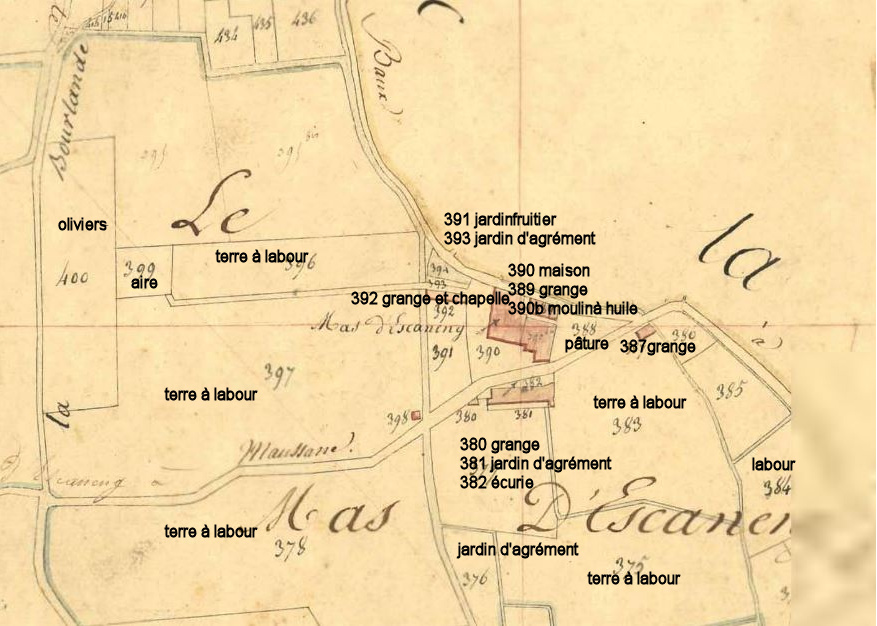 434
435
436
Bourlande
Baux
395
395 bis
Le
la
oliviers
400
399
aire
terre à labour
396
391 jardinfruitier
393 jardin d'agrément
394
393
390 maison
389 grange
390b moulinà huile
392 grange et chapelle
392
Mas d'Escaneny
391
390
388
pâture
387grange
386
à
385
terre à labour
397
la
398
380
381
382
terre à labour
383
Maussane
380 grange
381 jardin d'agrément
382 écurie
labour
384
Mas D'Escanen
terre à labour
378
jardin d'agrément
376
375
terre à labour